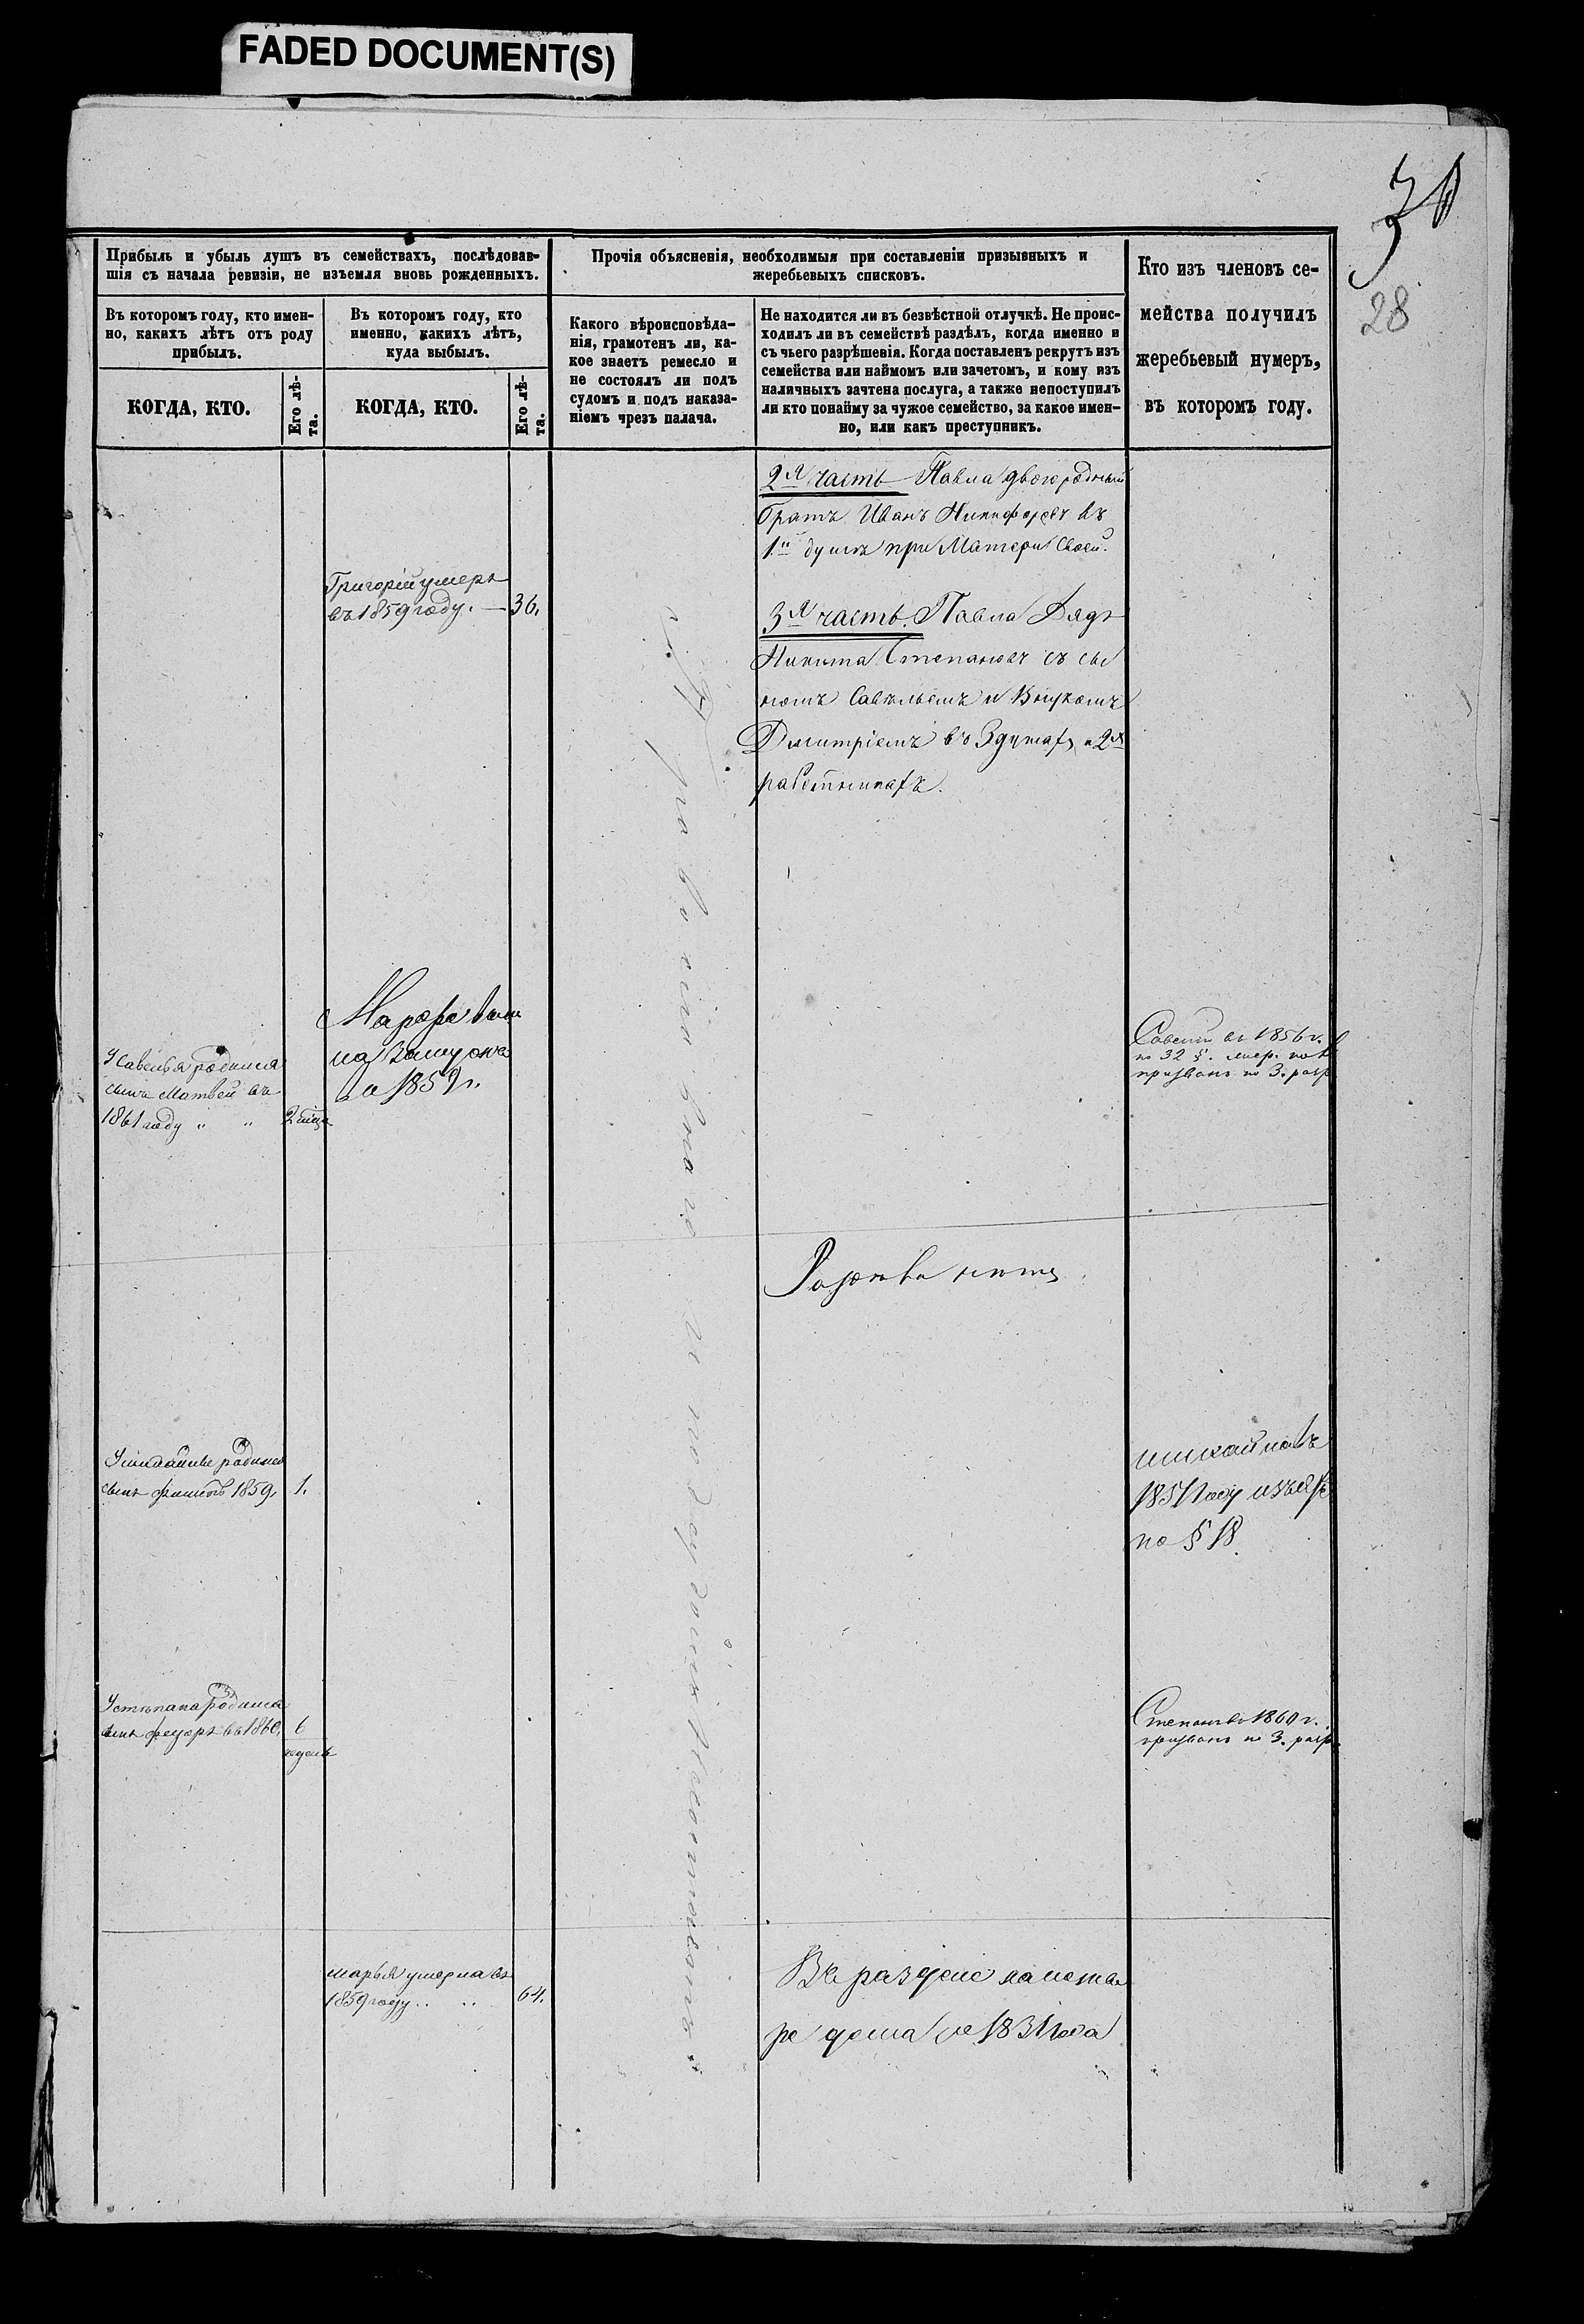 FADED DOCUMENT(S)
28
Прибыль и убыль душъ въ семействахъ, послѣдовав-
шія съ начала ревизіи, не изъемля вновь рожденныхъ.
Прочія объясненія, необходимыя при составленіи призывныхъ и
жеребьевыхъ списковъ.
Кто изъ членовъ се-
мейства получилъ
жеребьевый нумеръ,
въ которомъ году.
Въ которомъ году, кто имен-
но, какихъ лѣтъ отъ роду
прибылъ.
Въ которомъ году, кто
именно, какихъ лѣтъ,
куда выбылъ.
Какого вѣроисповѣда-
нія, грамотенъ ли, ка-
кое знаетъ ремесло и
не состоялъ ли подъ
судомъ и подъ наказа-
ніемъ чрезъ палача.
Не находится ли въ безвѣстной отлучкѣ. Не проис-
ходилъ ли въ семействѣ раздѣлъ, когда именно и
съ чьего разрѣшенія. Когда поставленъ рекрутъ изъ
семейства или наймомъ или зачетомъ, и кому изъ
наличныхъ зачтена послуга, а также непоступилъ
ли кто понайму за чужое семейство, за какое имен-
но, или какъ преступникъ.
КОГДА, КТО.
Его лѣ-
та.
КОГДА, КТО.
Его лѣ-
та.
2я часть Павла двоюродный
братъ Иванъ Никифоровъ въ
1й душѣ при Матери своей.
Григорій умеръ
въ 1859 году. — 36.
3я часть. Павла Дядя
Никита Степановъ съ сы
номъ Савельемъ и Внукомъ
Дмитріемъ въ 3 душахъ и 2хъ
работникахъ.
въ 1859 г.
У Савелья родился
сынъ Матвей въ
1861 году " " 2 мѣц
въ 1856 г.
по 32 §.
призванъ по 3. разр
Раздѣла нѣтъ
родился
сынъ 1859. 1.
1857 году
по § 18.
У Степана родился
сынъ Федоръ въ 1860. 6
недель
Степанъ въ 1860 г.
призванъ по 3. разр.
Марья умерла въ
1859 году.. .. 64.
Въ разделе
1831 года
православнаго и подсудомъ несостоялъ